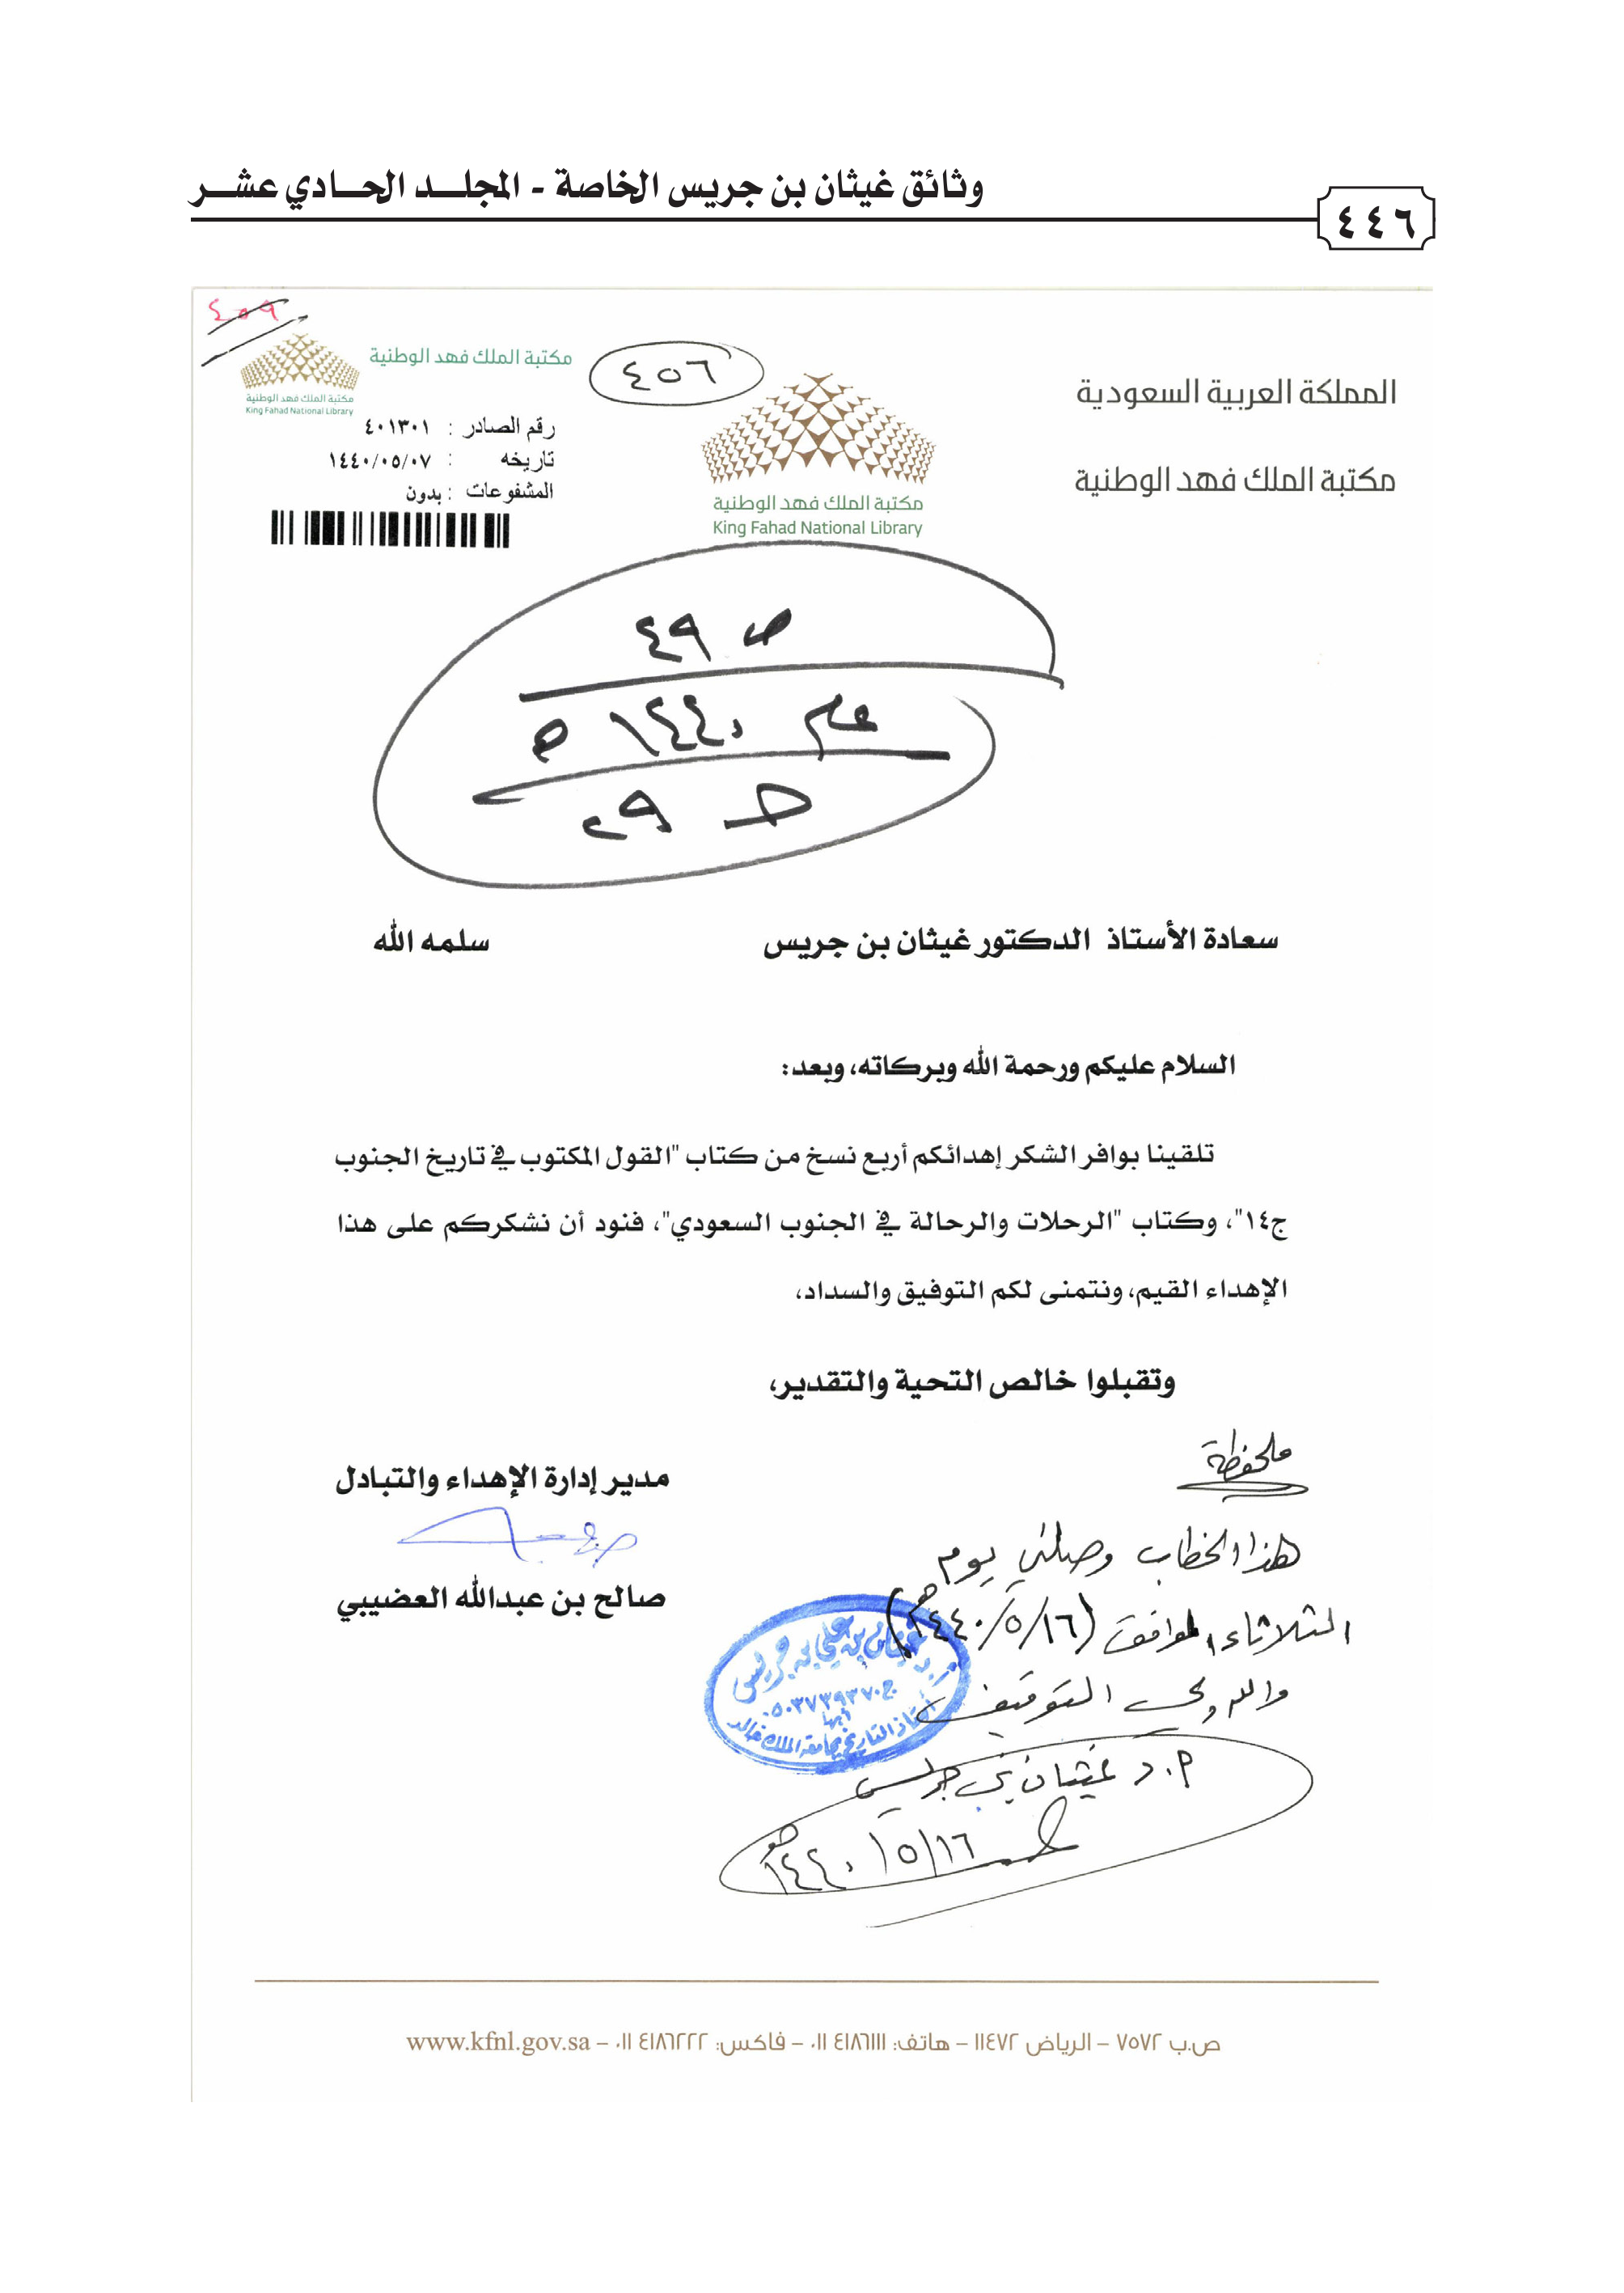 وثائق غيثان بن جريس الخاصة - المجلــد الحــادي عشــر
٤٤٦
٤٥٩
٤٥٦
المملكة العربية السعودية
مكتبة الملك فهد الوطنية
مكتبة الملك فهد الوطنية
King Fahad National Library
مكتبة الملك فهد الوطنية
مكتبة الملك فهد الوطنية
King Fahad National Library
رقم الصادر : ٤٠١٣٠١
تاريخه : ١٤٤٠/٠٥/٠٧
المشفوعات : بدون
ص ٤٩
عام ١٤٤٠ هـ
حـ ٢٩
سعادة الأستاذ الدكتور غيثان بن جريس سلمه الله
السلام عليكم ورحمة الله وبركاته، وبعد:
تلقينا بوافر الشكر إهدائكم أربع نسخ من كتاب "القول المكتوب في تاريخ الجنوب
ج١٤"، وكتاب "الرحلات والرحالة في الجنوب السعودي"، فنود أن نشكركم على هذا
الإهداء القيم، ونتمنى لكم التوفيق والسداد،
وتقبلوا خالص التحية والتقدير،
مدير إدارة الإهداء والتبادل
صالح بن عبدالله العضيبي
ملحوظة
هذا الخطاب وصلني يوم
الثلاثاء الموافق (١٤٤٠/٥/١٦هـ)
والله ولي التوفيق
أ.د غيثان بن جريس
١٤٤٠/٥/١٦هـ
أ.د. غيثان بن علي بن جريس
ج ٠٥٠٣٧٣٩٣٧٠
أبها
أستاذ التاريخ بجامعة الملك خالد
ص.ب ٧٥٧٢ – الرياض ١١٤٧٢ – هاتف: ٤١٨٦١١١ ٠١١ – فاكس: ٤١٨٦٢٢٢ ٠١١ – www.kfnl.gov.sa